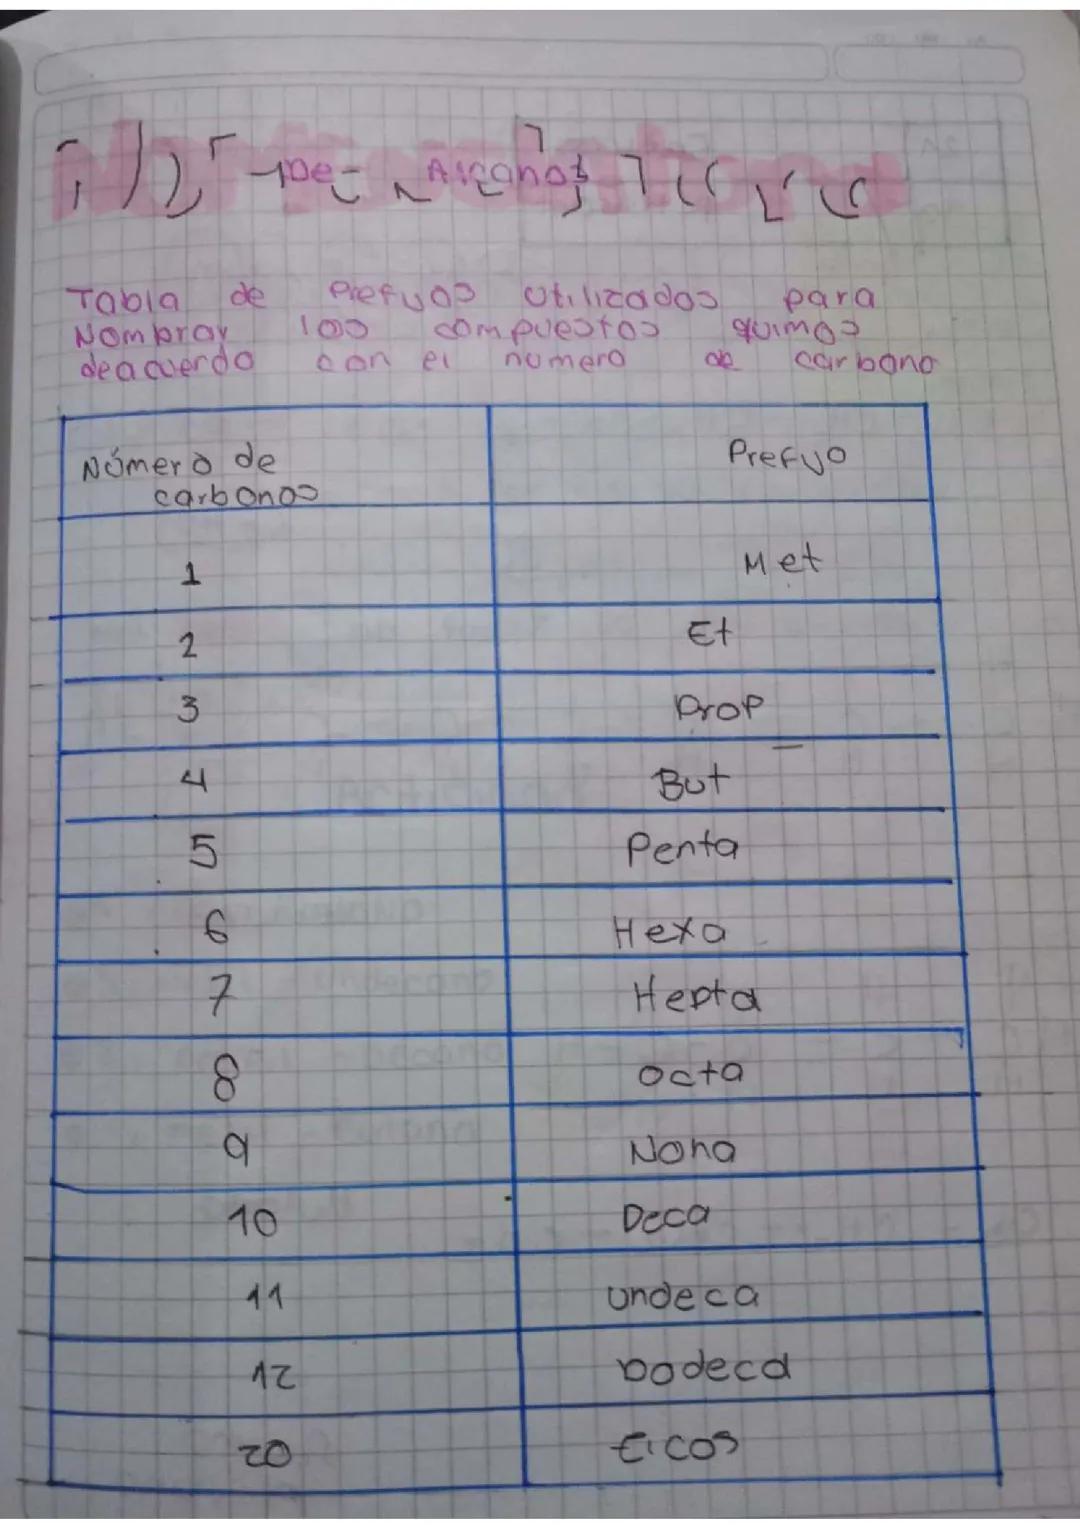 Nomenclatura
De Alcanos
Tabla de Prefijos utilizados para
Nombrar los compuestos quimos
deacuerdo con el numero de carbono
Número de Prefijo
carbonos
1 Met
2 Et
3 Prop
4 But
5 Penta
6 Hexa
7 Hepta
8 octa
9 Nona
10 Deca
11 undeca
12 Dodeca
20 Eicos